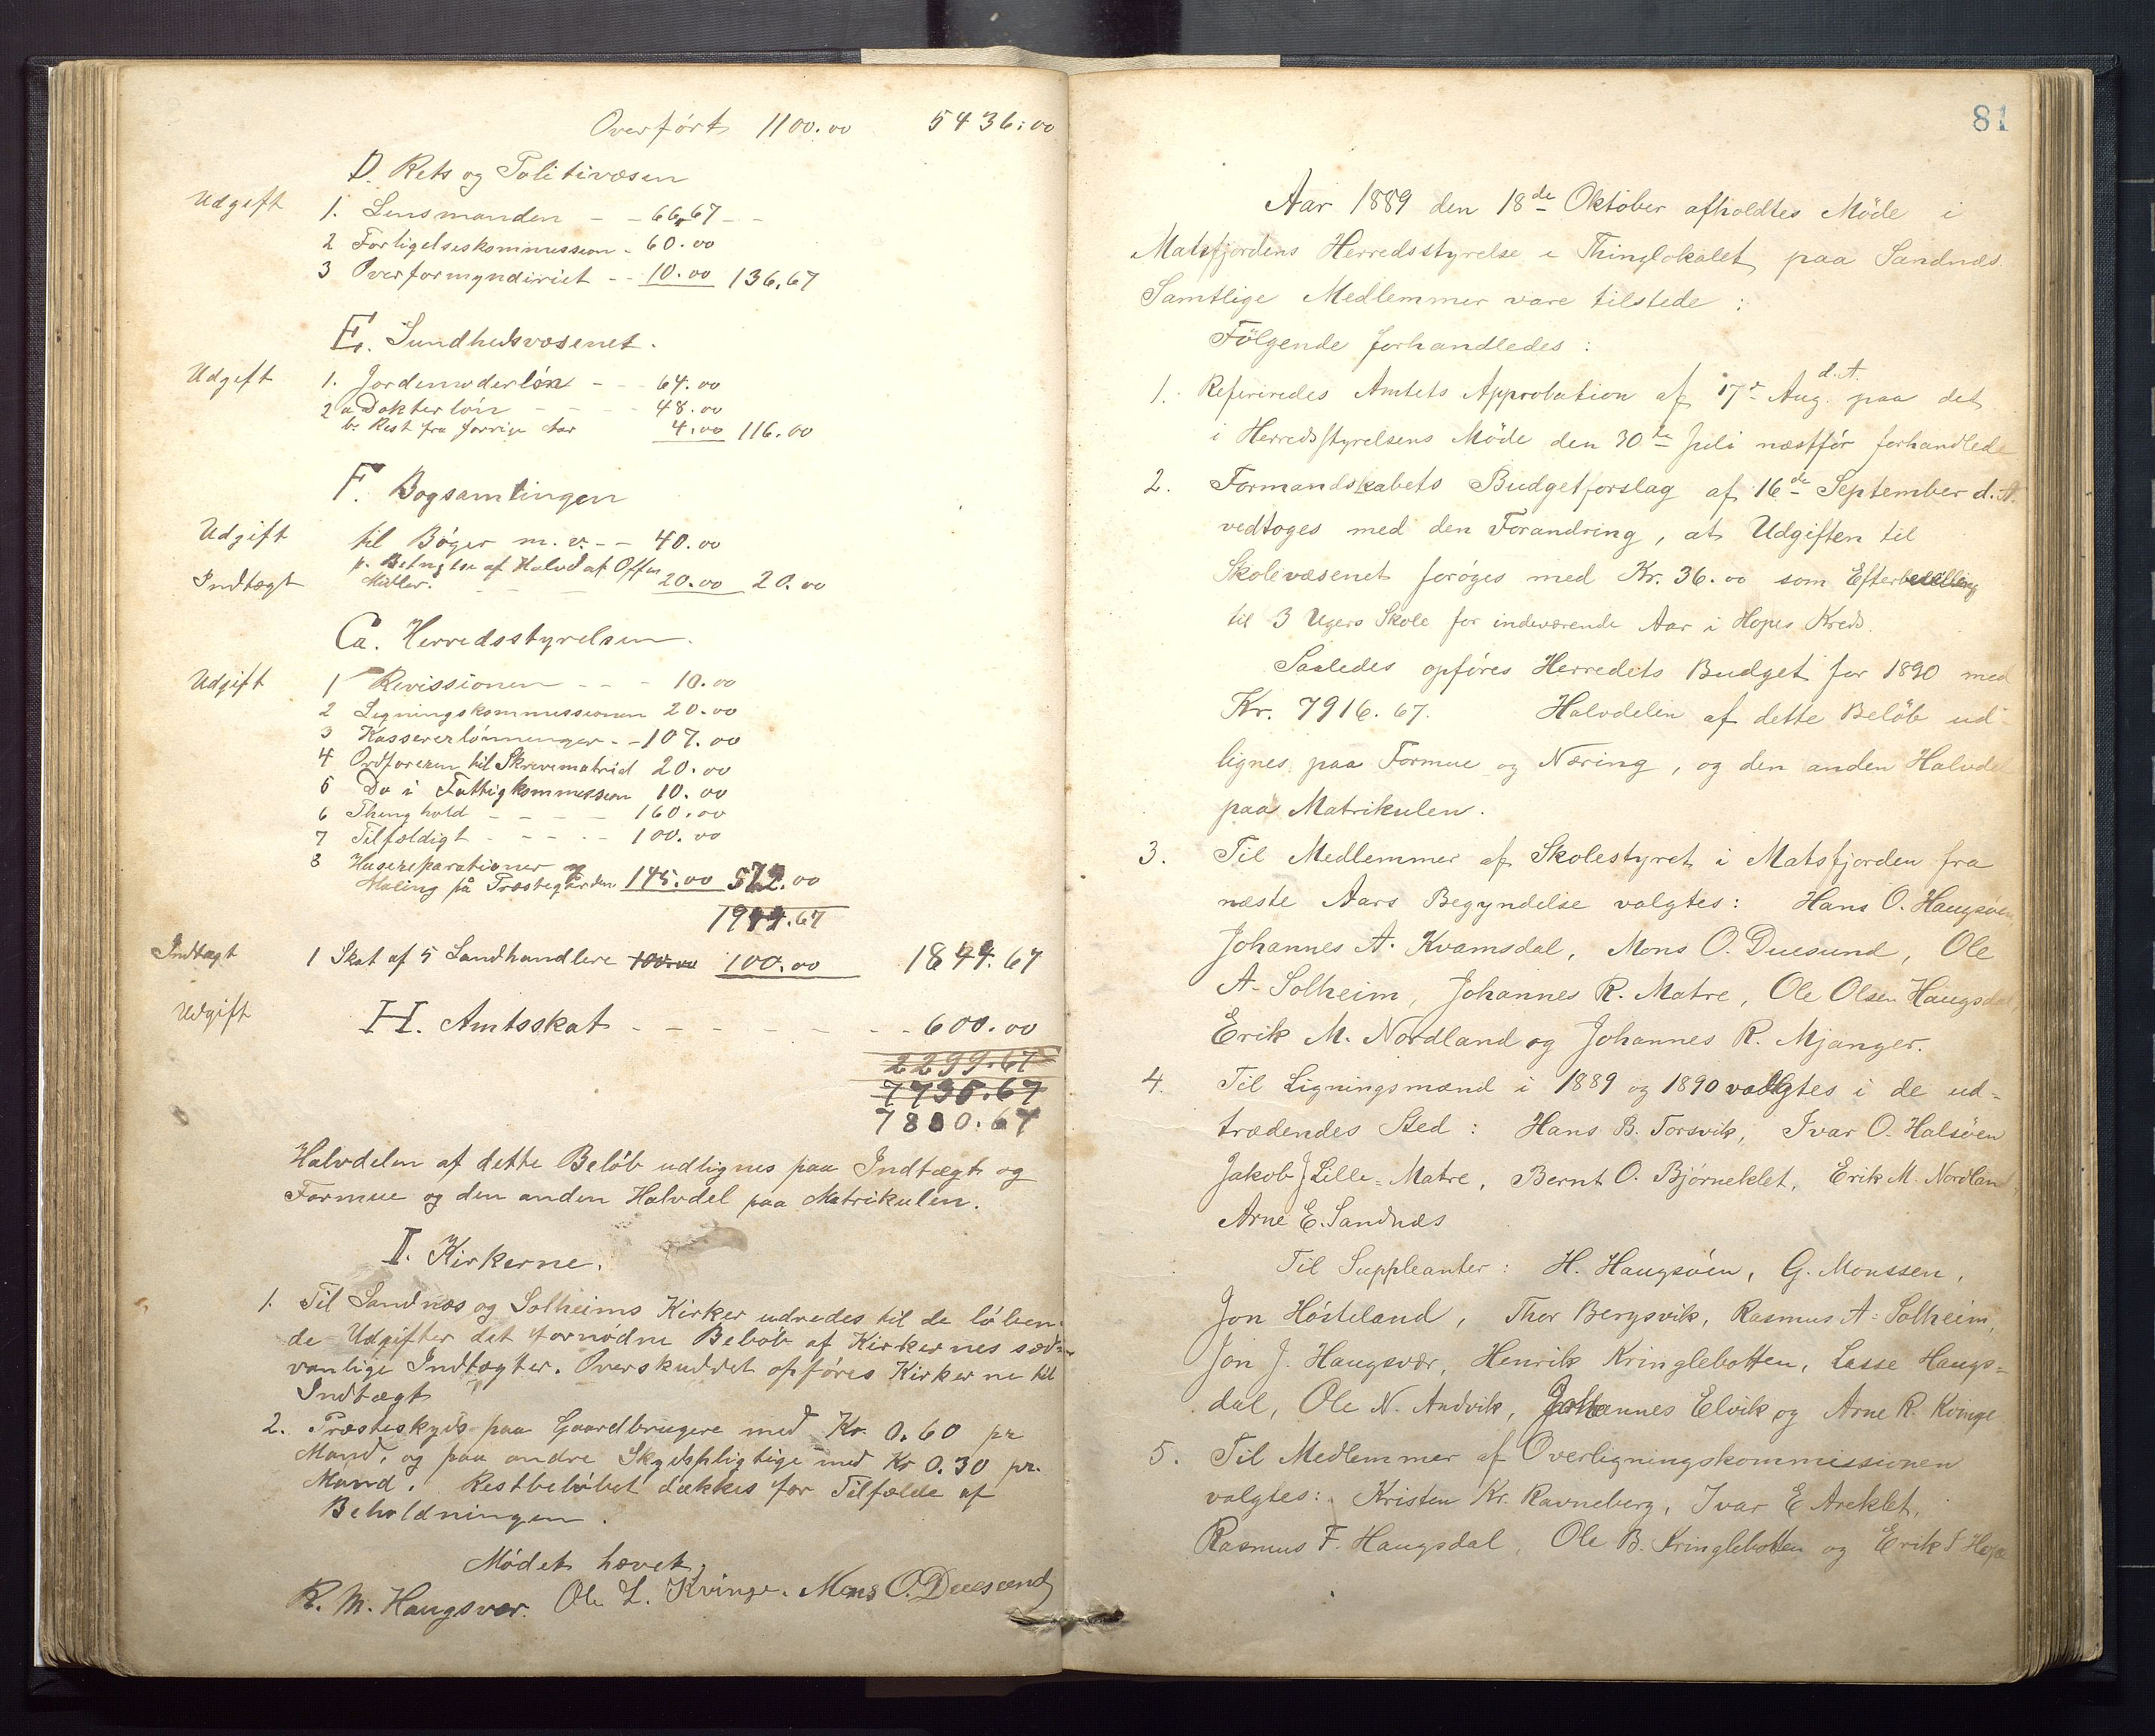 Overført 1100.00 5436.00
D. Rets og Politivæsen
Udgift 1. Lensmanden - - 66,67 - -
2 Forligelseskommission - 60.00
3 Overformynderiet - - 10.00 136,67
E. Sundhedsvæsenet.
Udgift 1. Jordemoderløn - - - 64.00
2 a Dokterløn - - - - 48.00
b. Rest fra forrige Aar 4.00 116.00
F. Bogsamlingen
Udgift til Bøger m. v. - - 40.00
p. af Halvd af Offen
Indtægt Midler. - - - 20.00 20.00
Ca. Herredsstyrelsen.
Udgift 1 Revissionen - - - 10.00
2 Ligningskommissionen 20.00
3 Kassererlønninger - - 107.00
4 Ordføreren til Skrivematriel 20.00
5 Do i Fattigkommission 10.00
6 Thinghold - - - - 160.00
7 Tilfældigt - - - - 100.00
8 Husereparationer og
Maling på Præstegården 145.00 572.00
1944.67
Indtægt 1 Skat af 5 Landhandlere 100.00 100.00 1844.67
Udgift H. Amtsskat - - - - - - - 600.00
2299.67
7735.67
7880.67
Halvdelen af dette Beløb udlignes paa Indtægt og
Formue og den anden Halvdel paa Matrikulen.
I. Kirkerne.
1. Til Sandnæs og Solheims Kirker udredes til de løben-
de Udgifter det fornødne Beløb af Kirkernes sæd-
vanlige Indtægter. Overskuddet opføres Kirkerne til
Indtægt
2. Præsteskyds paa Gaardbrugere med Kr. 0.60 pr
Mand, og paa andre Skydspligtige med Kr 0.30 pr.
Mand. Restbeløbet dækkes for Tilfælde af
Beholdningen.
Mødet hævet,
R. M. Haugsvær. Ole L. Kvinge. Mons O. Duesund
81
Aar 1889 den 18de Oktober afholdtes Møde i
Matsfjordens Herredsstyrelse i Thinglokalet paa Sandnæs.
Samtlige Medlemmer vare tilstede:
Følgende forhandledes:
1. Refereredes Amtets Approbation af 17de Aug. d.A. paa det
i Herredsstyrelsens Møde den 30te Juli næstfør forhandlede
2. Formandskabets Budgetforslag af 16de September d. A.
vedtoges med den Forandring, at Udgiften til
Skolevæsenet forøges med Kr. 36.00 som Efterbevilling
til 3 Ugers Skole for indeværende Aar i Hopes Kreds.
Saaledes opføres Herredets Budget for 1890 med
Kr. 7916.67. Halvdelen af dette Beløb ud-
lignes paa Formue og Næring, og den anden Halvdel
paa Matrikulen.
3. Til Medlemmer af Skolestyret i Matsfjorden fra
næste Aars Begyndelse valgtes: Hans O. Haugsøen
Johannes A. Kvamsdal, Mons O. Duesund, Ole
A. Solheim, Johannes R. Matre, Ole Olsen Haugsdal,
Erik M. Nordland og Johannes R. Mjanger.
4. Til Ligningsmænd i 1889 og 1890 valgtes i de ud-
trædendes Sted: Hans B. Torsvik, Ivar O. Halsøen
Jakob J Lille-Matre, Bernt O. Bjørneklet, Erik M. Nordland
Arne E. Sandnæs
Til Suppleanter: H. Haugsøen, G. Monssen,
Jon Høsteland, Thor Bergsvik, Rasmus A. Solheim,
Jon J. Haugsvær, Henrik Kringlebotten, Lasse Haugs-
dal, Ole N. Andvik, Johannes Elvik og Arne R. Kvinge
5. Til Medlemmer af Overligningskommissionen
valgtes: Kristen Kr. Ravneberg, Ivar E Areklet,
Rasmus F. Haugsdal, Ole B. Kringlebotten og Erik